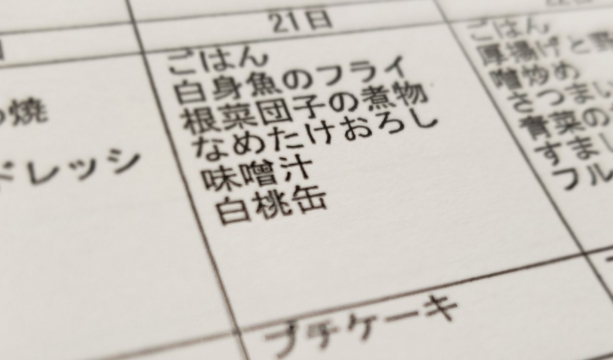 21日
焼
ドレッシ
ごはん
白身魚のフライ
根菜団子の煮物
なめたけおろし
味噌汁
白桃缶
プチケーキ
ごはん
厚揚げと
噌炒め
さつまい
青菜の
すまし
フル